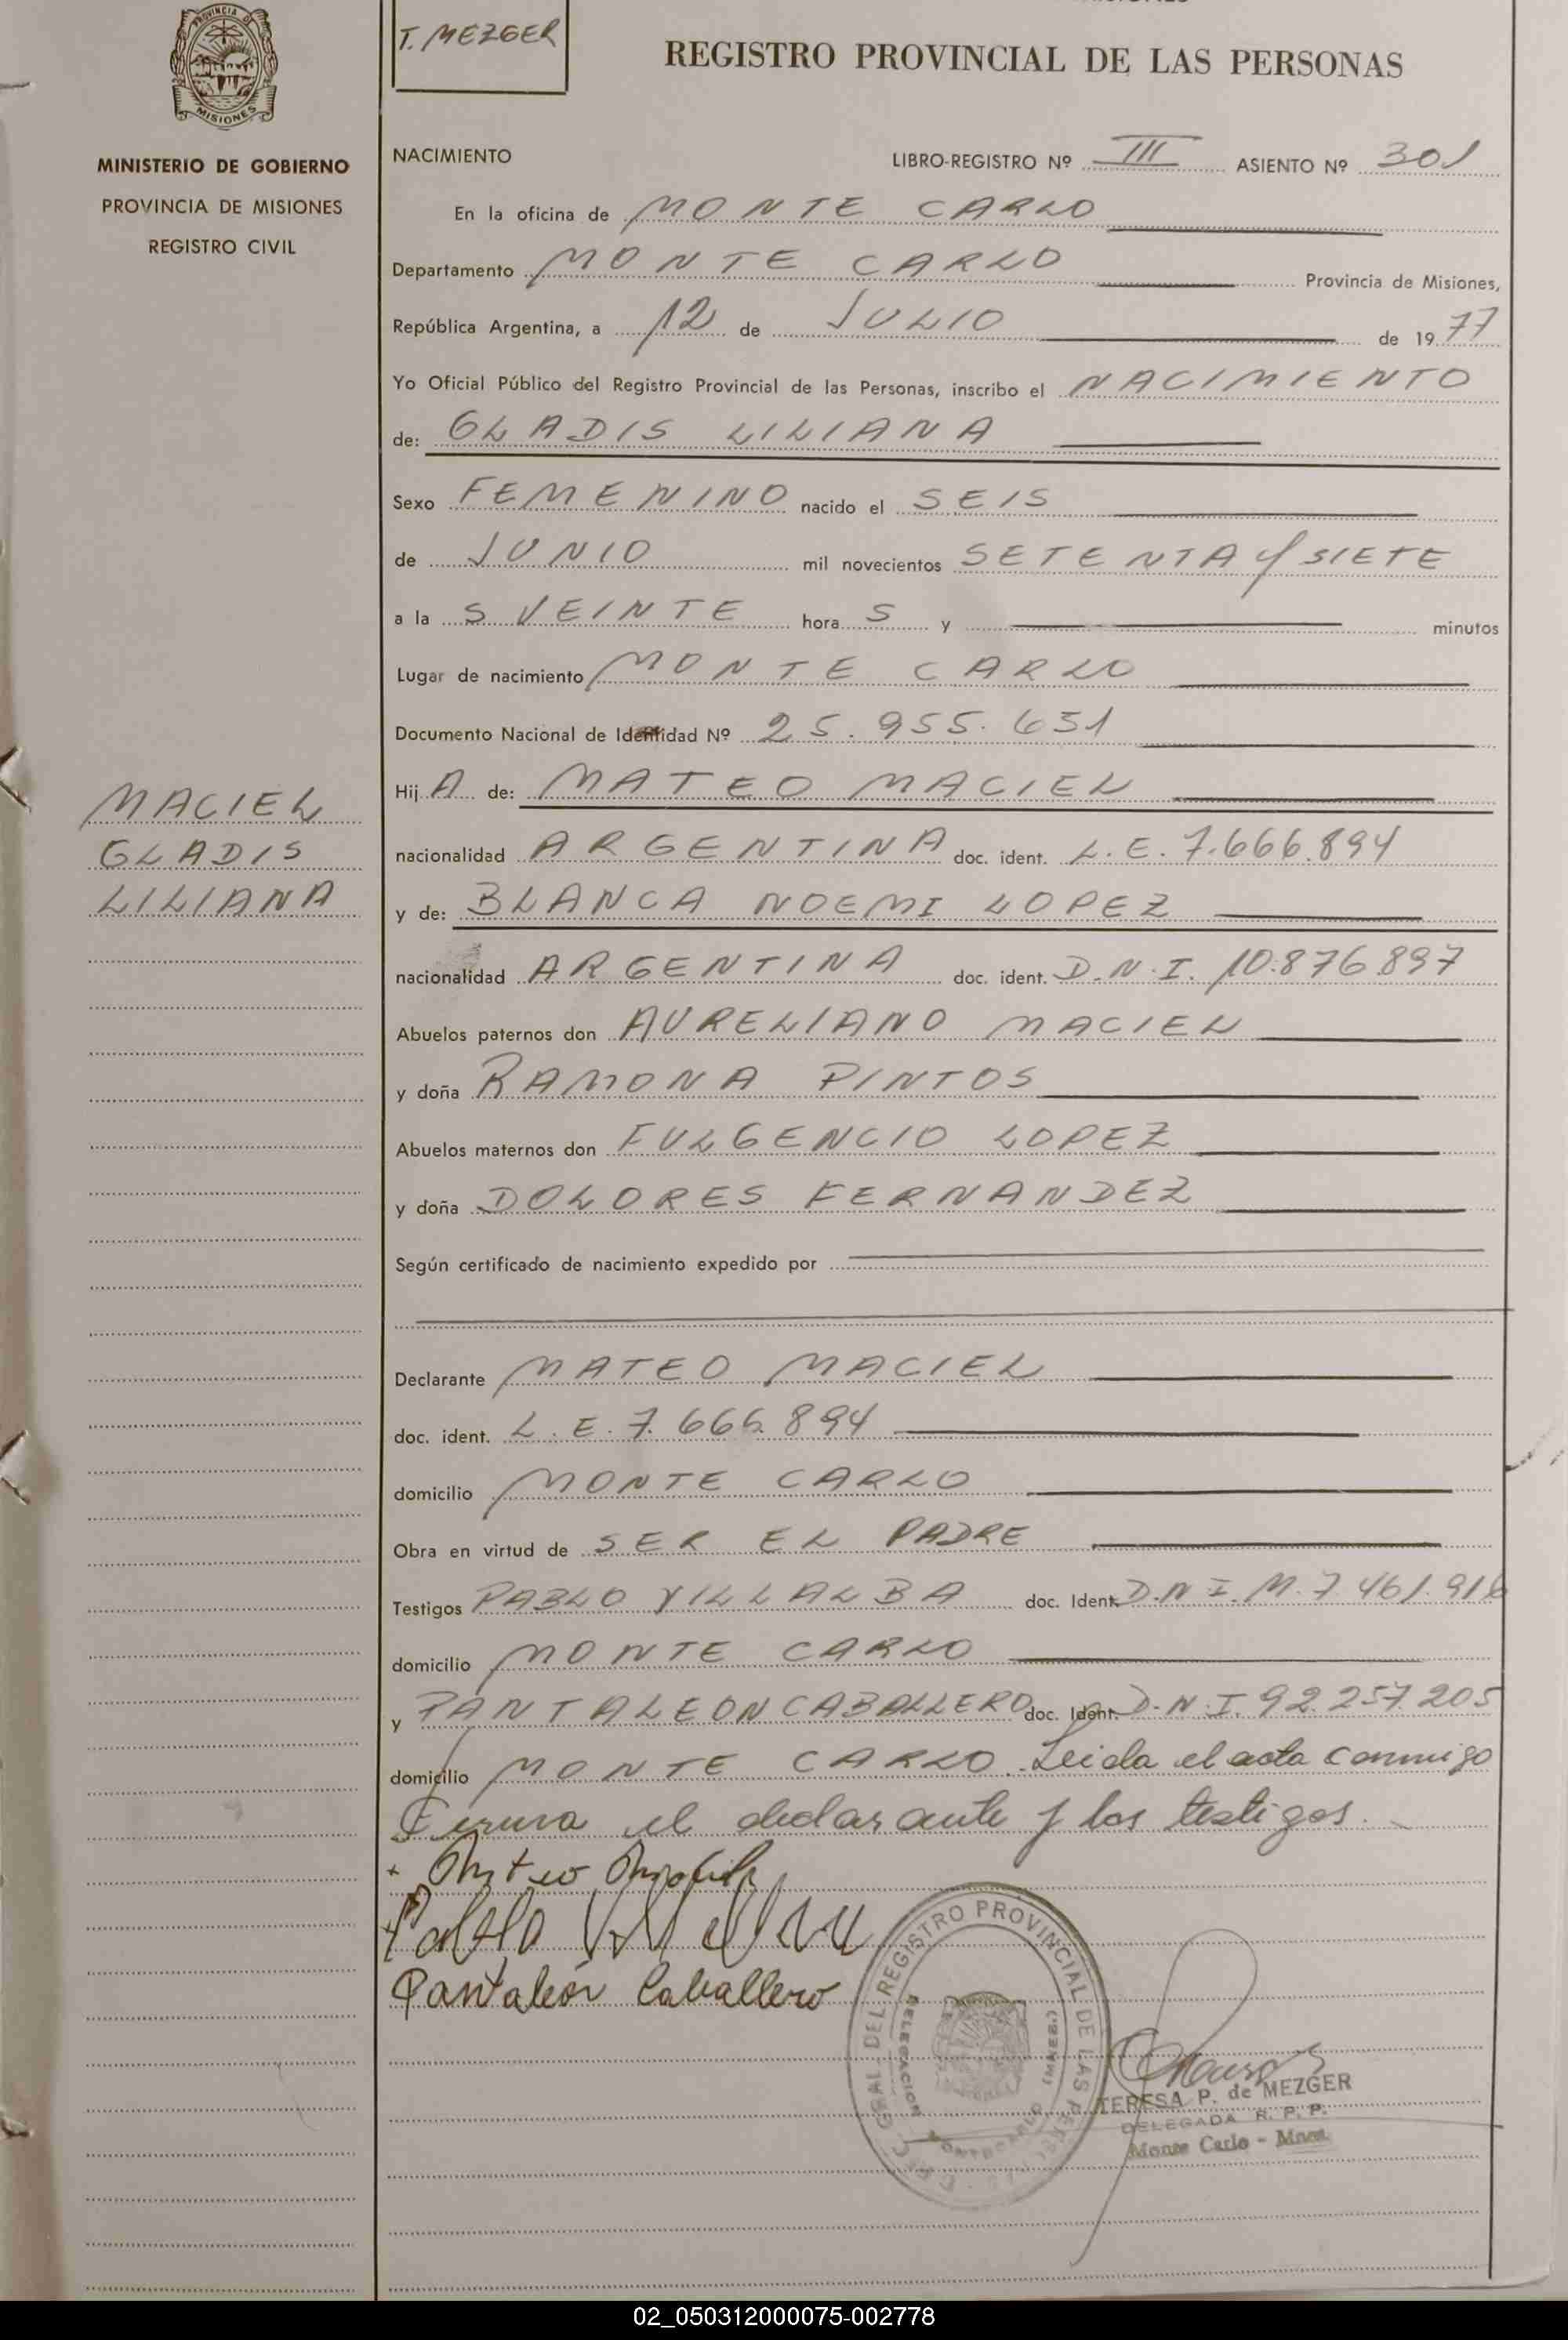 PROVINCIA DE
MISIONES
MINISTERIO DE GOBIERNO
PROVINCIA DE MISIONES
REGISTRO CIVIL
T. MEZGER
REGISTRO PROVINCIAL DE LAS PERSONAS
NACIMIENTO LIBRO-REGISTRO Nº III ASIENTO Nº 301
En la oficina de MONTE CARLO
Departamento MONTE CARLO Provincia de Misiones,
República Argentina, a 12 de JULIO de 1977
Yo Oficial Público del Registro Provincial de las Personas, inscribo el NACIMIENTO
de: GLADIS LILIANA
Sexo FEMENINO nacido el SEIS
de JUNIO mil novecientos SETENTA y SIETE
a la S VEINTE hora S y minutos
Lugar de nacimiento MONTE CARLO
Documento Nacional de Identidad Nº 25.955.651
MACIEL
GLADIS
LILIANA
Hij A de: MATEO MACIEL
nacionalidad ARGENTINA doc. ident. L.E. 7.666.894
y de: BLANCA NOEMI LOPEZ
nacionalidad ARGENTINA doc. ident. D.N.I. 10.876.897
Abuelos paternos don AURELIANO MACIEL
y doña RAMONA PINTOS
Abuelos maternos don FULGENCIO LOPEZ
y doña DOLORES FERNANDEZ
Según certificado de nacimiento expedido por
Declarante MATEO MACIEL
doc. ident. L.E. 7.666.894
domicilio MONTE CARLO
Obra en virtud de SER EL PADRE
Testigos PABLO VILLALBA doc. Ident. D.N.I. M. 7.461.916
domicilio MONTE CARLO
y PANTALEON CABALLERO doc. Ident. D.N.I. 92.257.205
domicilio MONTE CARLO. Leida el acta conmigo
Firma el declarante y los testigos.
+ Mateo Maciel
Pablo Villalba
Pantaleón Caballero
DEL REGISTRO PROVINCIAL DE LAS PERSONAS
DELEGACION
MONTECARLO
(MNES.)
TERESA P. de MEZGER
DELEGADA R. P. P.
Monte Carlo - Mnes.
02_050312000075-002778